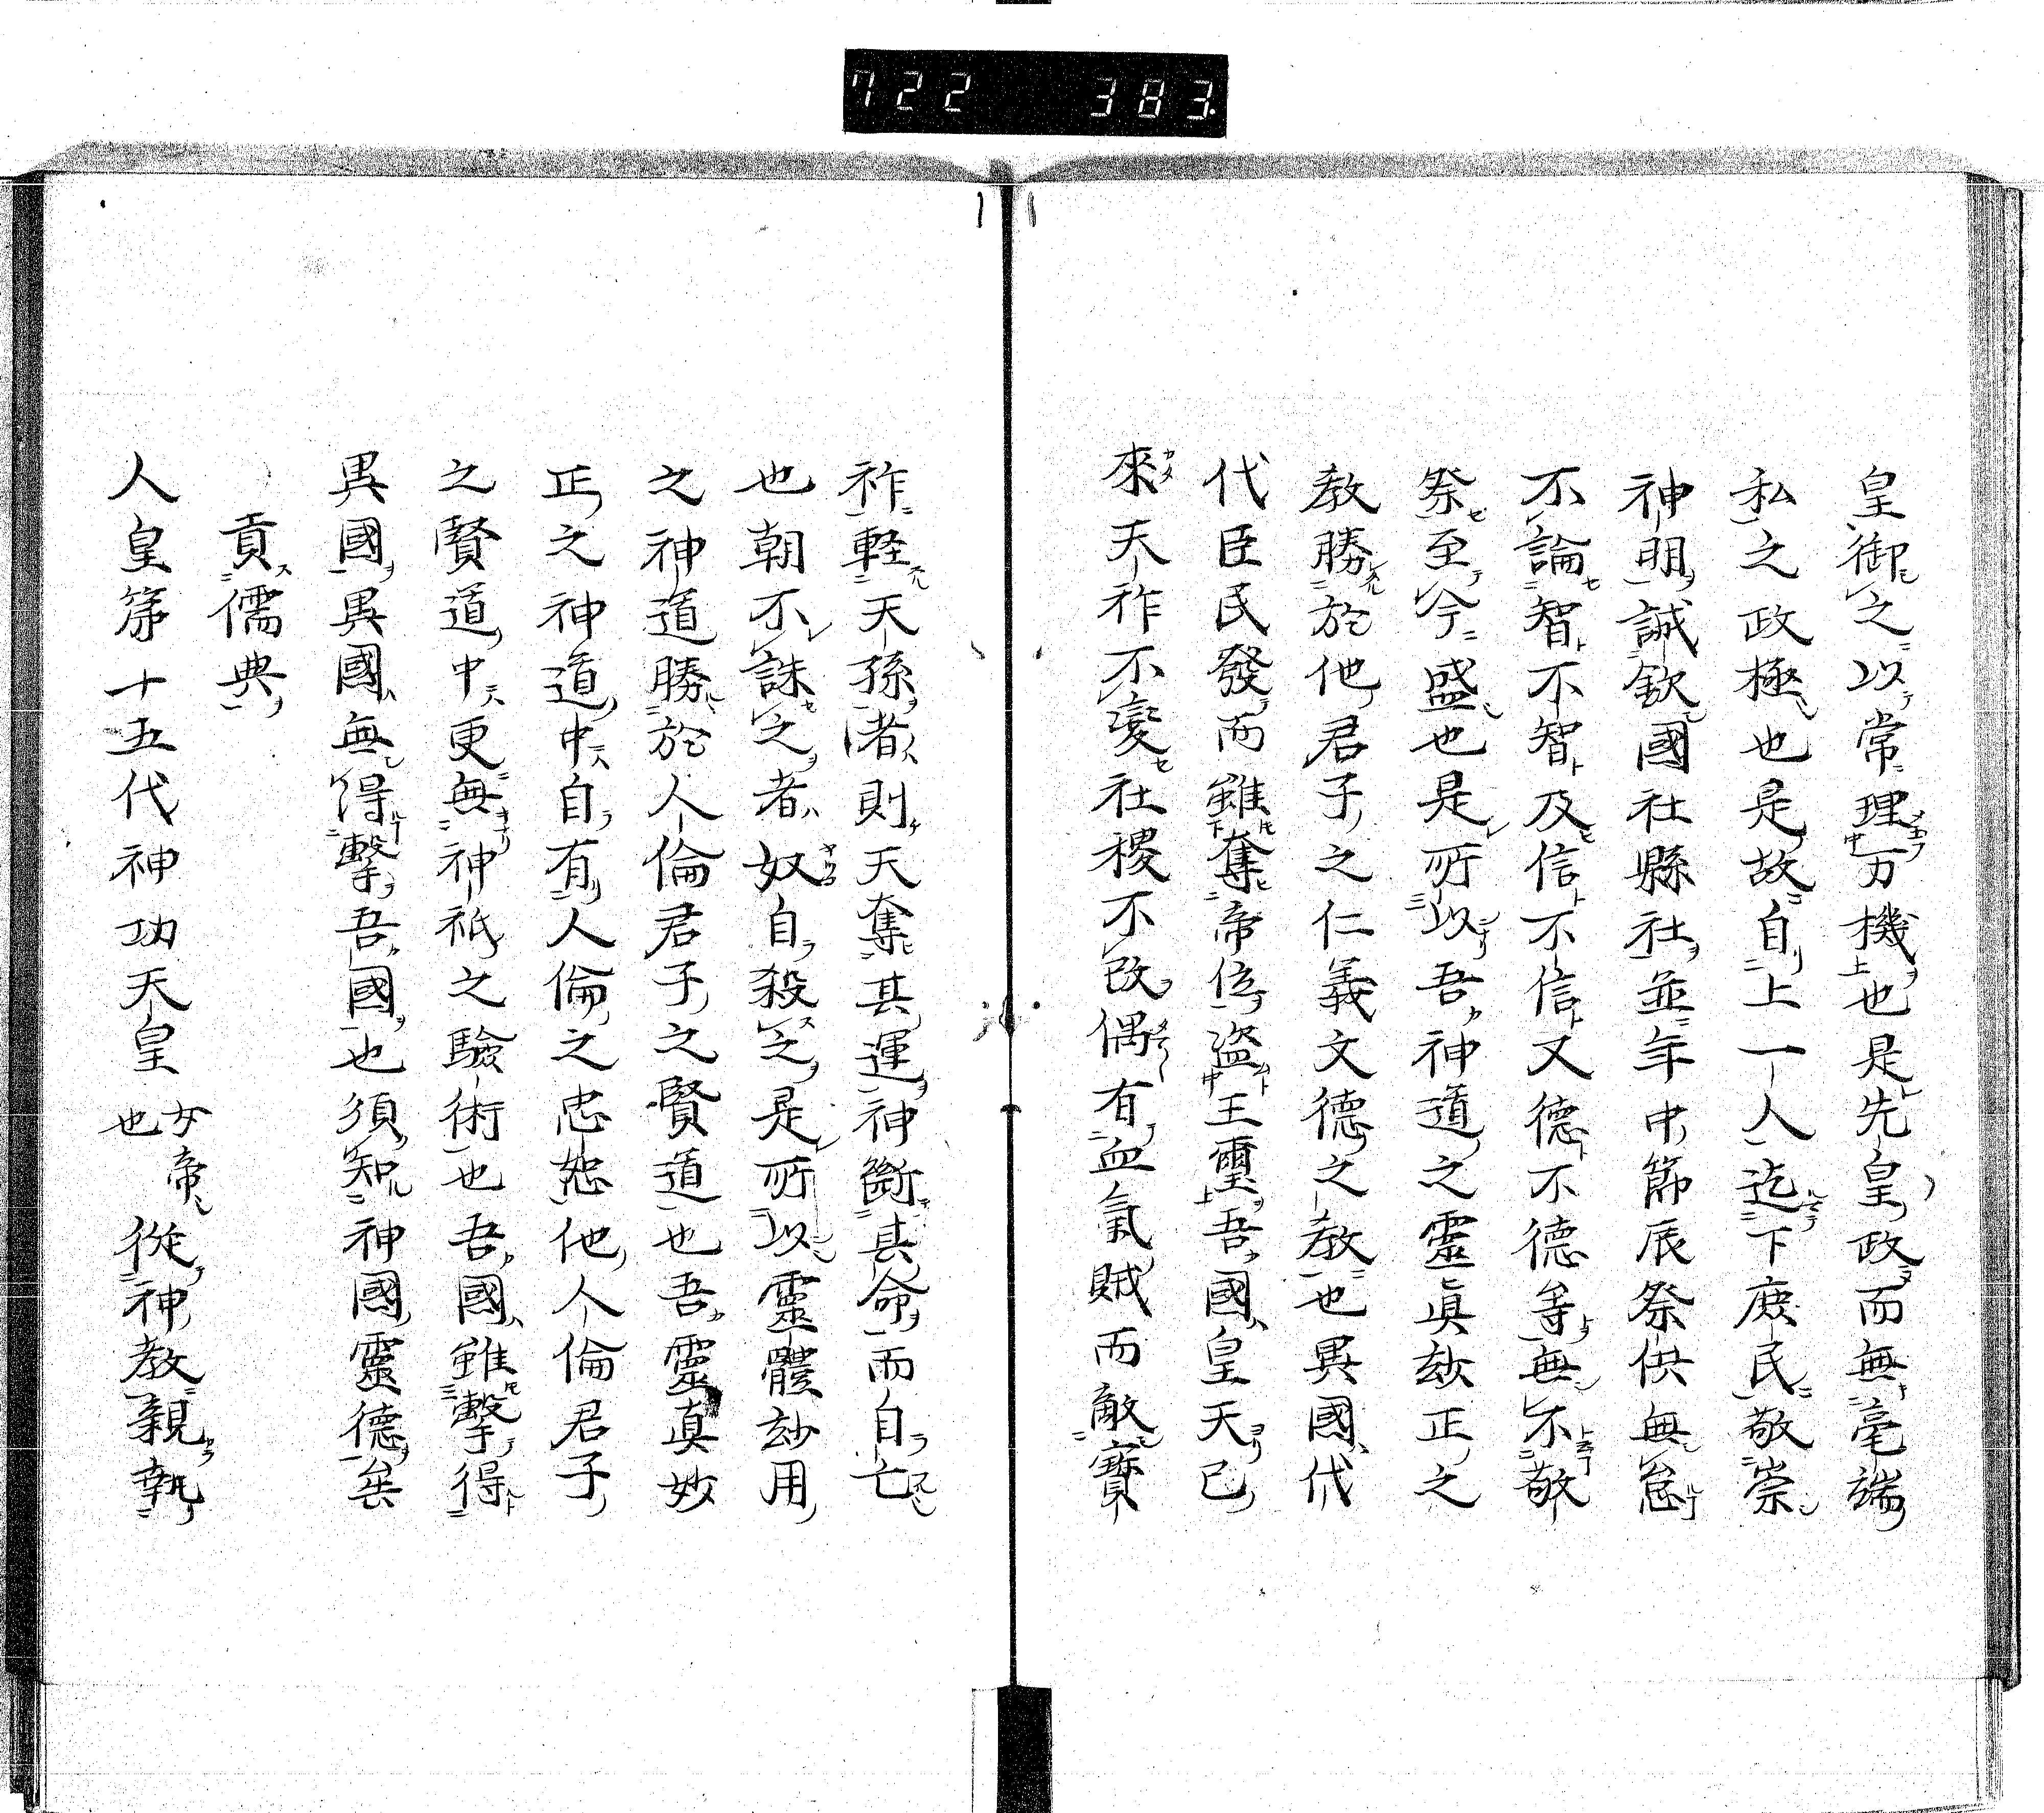 722 383
皇御之以常理万機也是先皇政而無毫端
私之政極也是故自上一人迄下庶民敬崇
神明誠欽國社縣社並年中節辰祭供無怠
不論智不智及信不信又德不德等無不敬
祭至今盛也是所以吾神道之靈真妙正之
教勝於他君子之仁義文德之教也異國代
代臣民發而雖奪帝位盜王璽吾國皇天已
來天祚不變社稷不改偶有血氣賊而敵寶
祚輕天孫者則天奪其運神斷其命而自亡
也朝不誅之者奴自殺之是所以靈體妙用
之神道勝於人倫君子之賢道也吾靈真妙
正之神道中自有人倫之忠恕他人倫君子
之賢道中更無神祇之驗術也吾國雖擊得
異國異國無得擊吾國也須知神國靈德矣
貢儒典
人皇第十五代神功天皇女帝也從神教親執